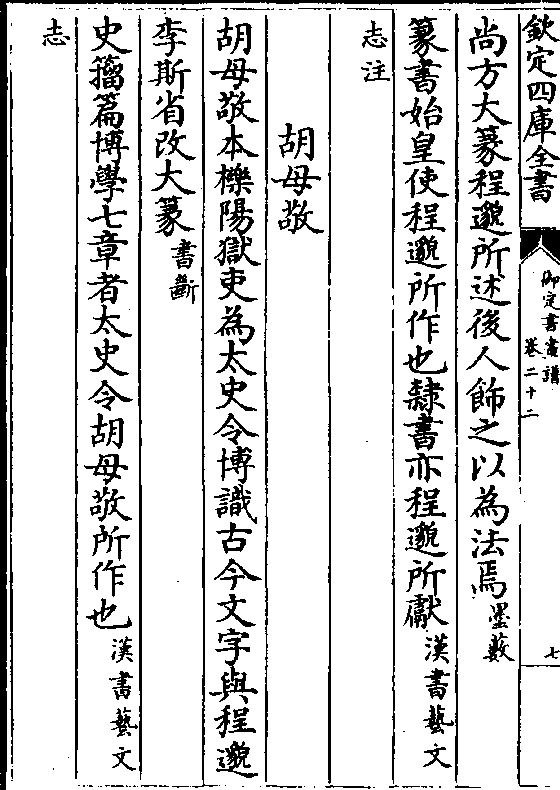 欽定四庫全書
御定書畫譜
卷二十二
七
尚方大篆程邈所述後人飾之以為法焉墨藪
篆書始皇使程邈所作也隸書亦程邈所獻漢書藝文
志注
胡母敬
胡母敬本櫟陽獄吏為太史令博識古今文字與程邈
李斯省改大篆書斷
史籀篇博學七章者太史令胡母敬所作也漢書藝文
志